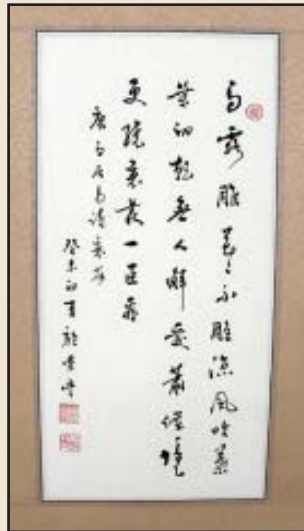 白露雕花〻不殘涼風吹葉
葉初乾無人解愛蕭條境
更繞衰叢一匝看
唐白居易詩衰荷
癸未初夏